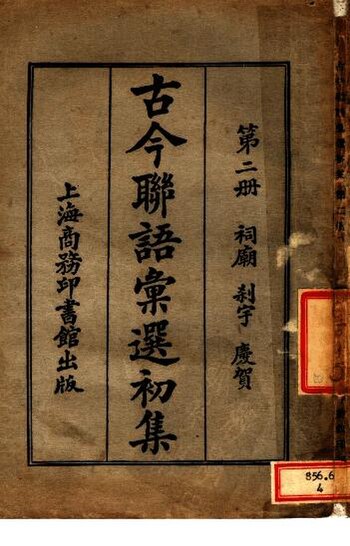 第二册 祠廟 刹宇 慶賀
古今聯語彙選初集
上海商務印書館出版
856.6
4